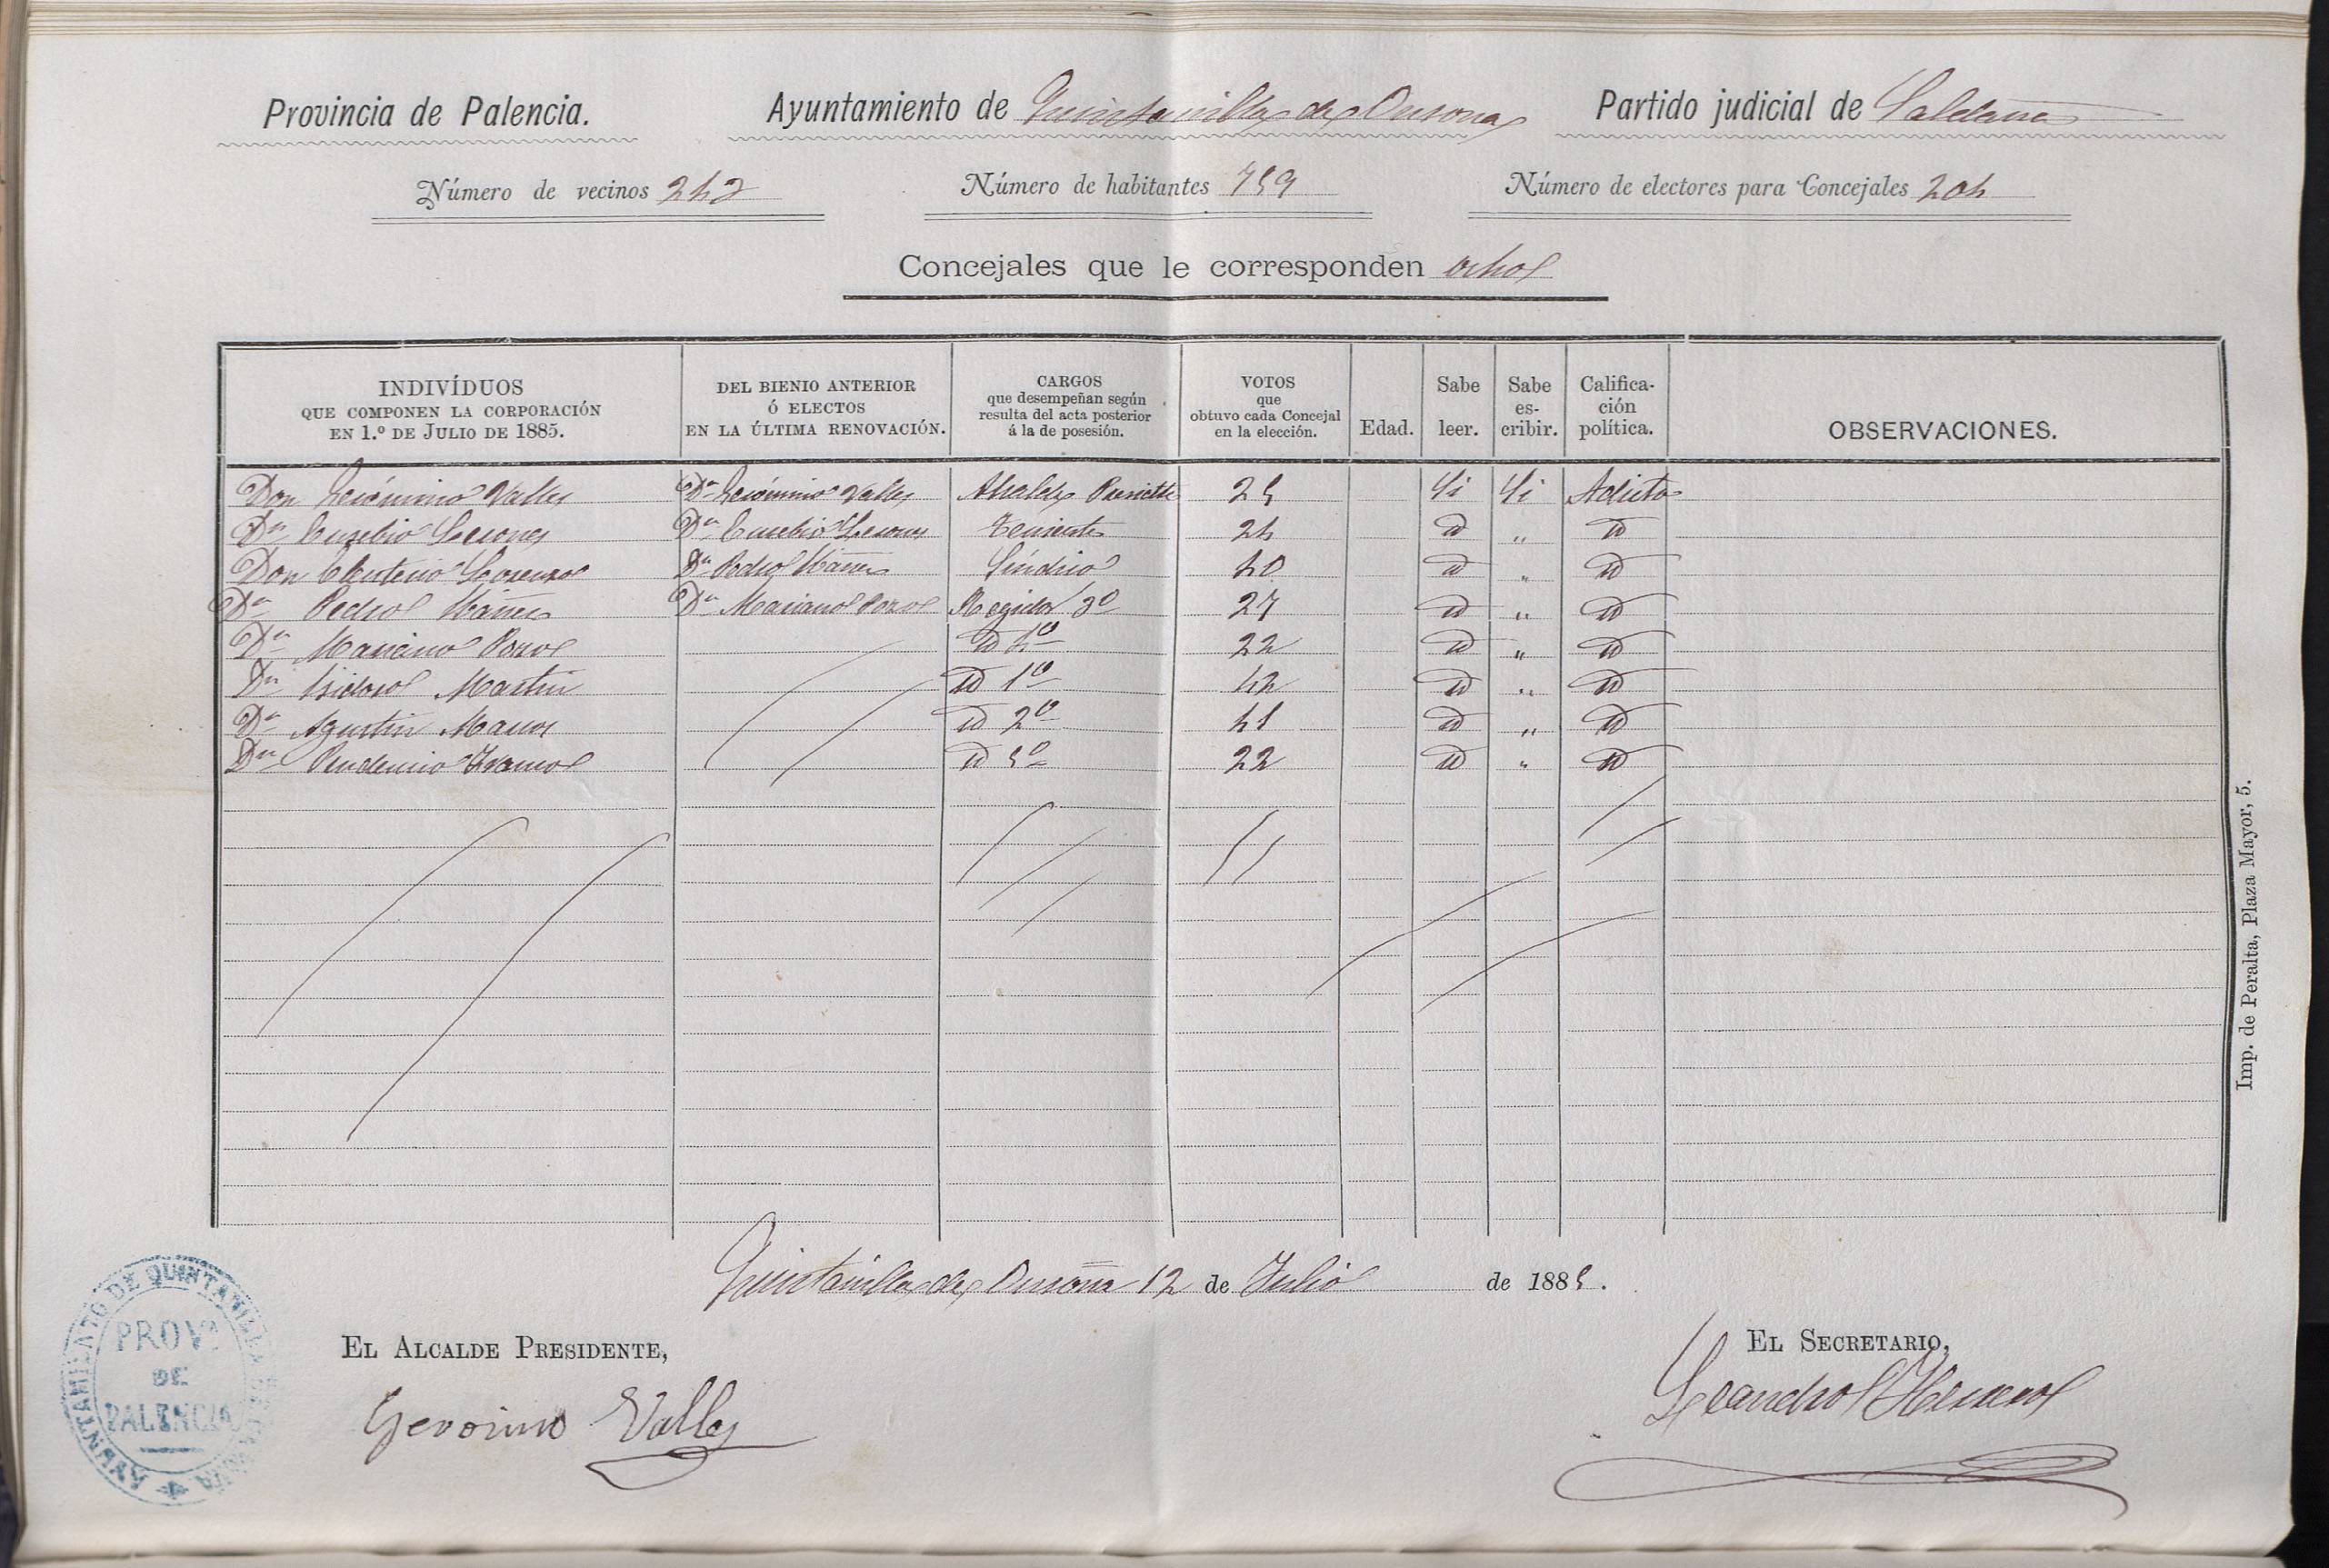 Provincia de Palencia. Ayuntamiento de Quintanilla de Onsoña Partido judicial de Saldaña
Número de vecinos 242 Número de habitantes 759 Número de electores para Concejales 204
Concejales que le corresponden ocho
INDIVÍDUOS QUE COMPONEN LA CORPORACIÓN EN 1.º DE JULIO DE 1885. DEL BIENIO ANTERIOR Ó ELECTOS EN LA ÚLTIMA RENOVACIÓN. CARGOS que desempeñan según resulta del acta posterior á la de posesión. VOTOS que obtuvo cada Concejal en la elección. Edad. Sabe leer. Sabe escribir. Calificación política. OBSERVACIONES.
Don Gerónimo Valles Dn Gerónimo Valles Alcalde Presidte 25 Si Si Adicto
Dn Eusebio Lesones Dn Eusebio Lesones Teniente 24 id „ id
Don Eleuterio Lorenzo Dn Pedro Ibáñes Síndico 40 id „ id
Dn Pedro Ibáñes Dn Mariano Pozo Regidor 3º 27 id „ id
Dn Mariano Pozo id 4º 22 id „ id
Dn Isidoro Martin id 1º 42 id „ id
Dn Agustin id 2º 41 id „ id
Dn Prudencio id 5º 22 id „ id
Imp. de Peralta, Plaza Mayor, 5.
Quintanilla de Onsoña 12 de Julio de 1885.
EL ALCALDE PRESIDENTE, EL SECRETARIO,
Geronimo Valles Leandro Herrero
AYUNTAMIENTO DE QUINTANILLA DE ONSOÑA
PROVª
DE
PALENCIA